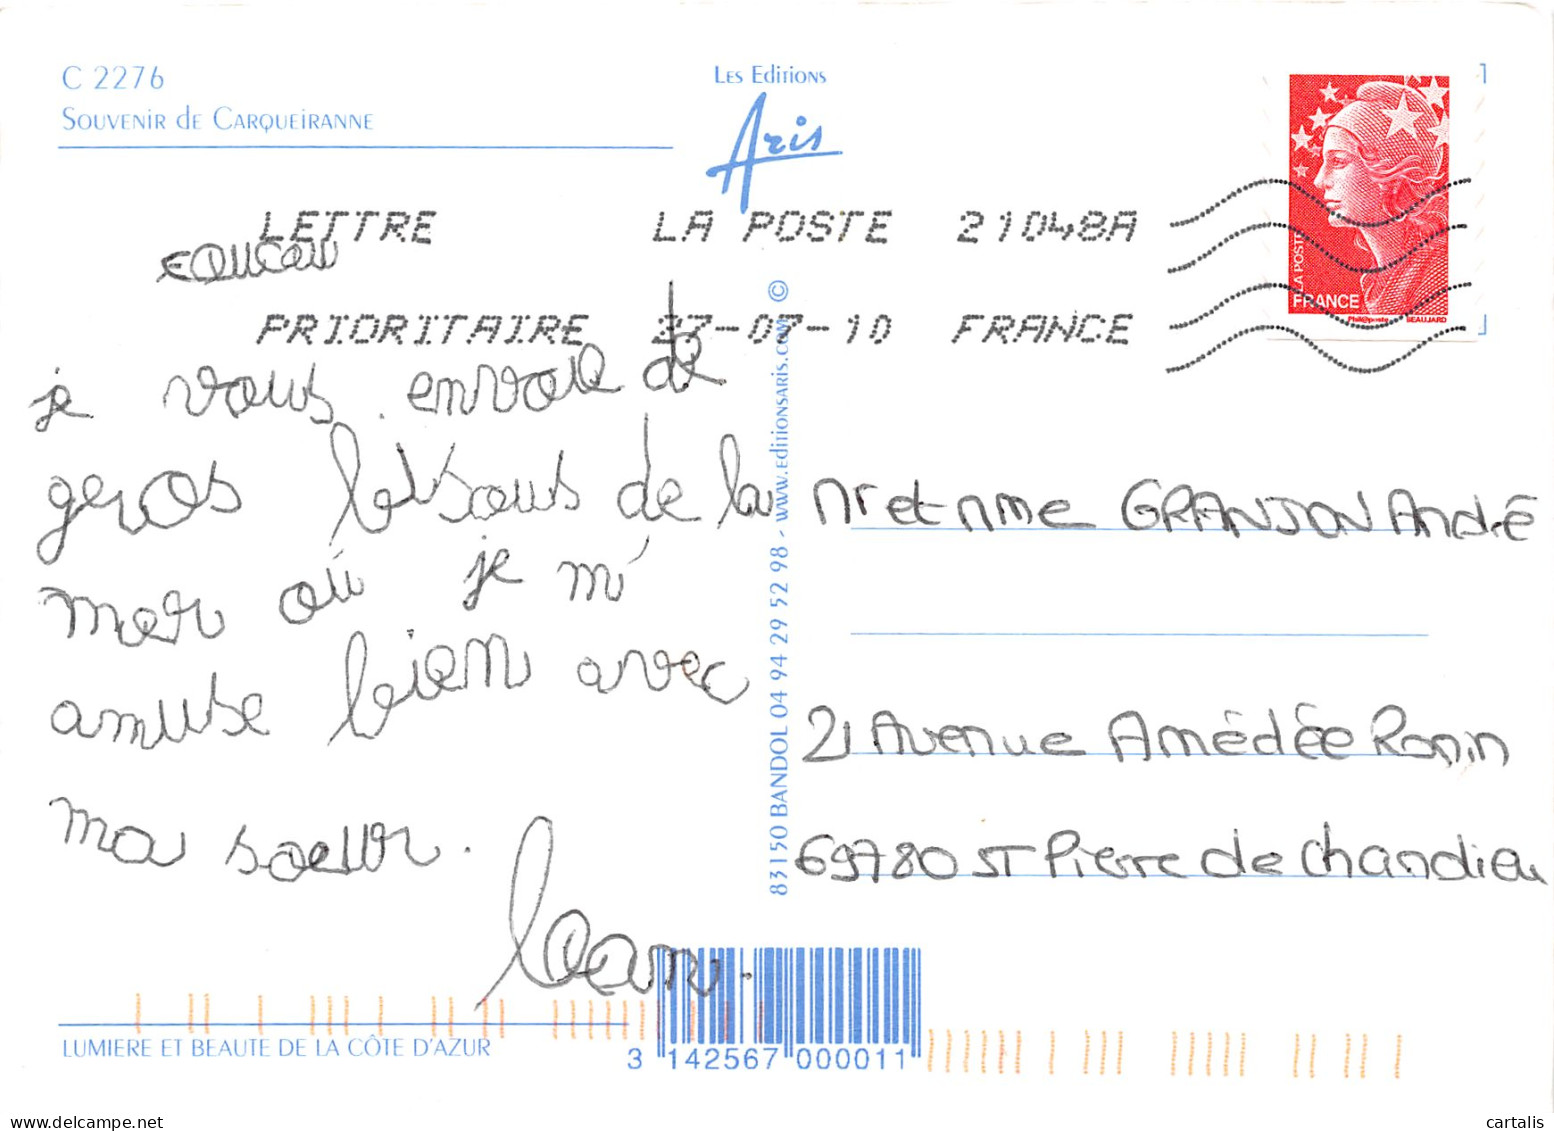 C 2276
Souvenir de Carqueiranne
Les Editions
Aris
LETTRE LA POSTE 21048A
PRIORITAIRE 27-07-10 FRANCE
LA POSTE
FRANCE
Phil@poste BEAUJARD
coucou
je vous envoie de
geros bisous de la
mer où je m'
amuse bien avec
ma soeur.
Loan.
83150 BANDOL 04 94 29 52 98 - www.editionsaris.com ©
Mr et Mme GRANJON André
21 Avenue Amédée Ronin
69780 ST Pierre de Chandieu
LUMIERE ET BEAUTE DE LA CÔTE D'AZUR
3 142567 000011
cartalis
www.delcampe.net